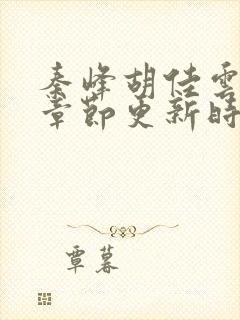 秦峰胡佳雲
章節更新時
覃暮